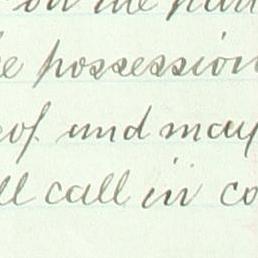 on the part
e possession
eof and may
ll call in co